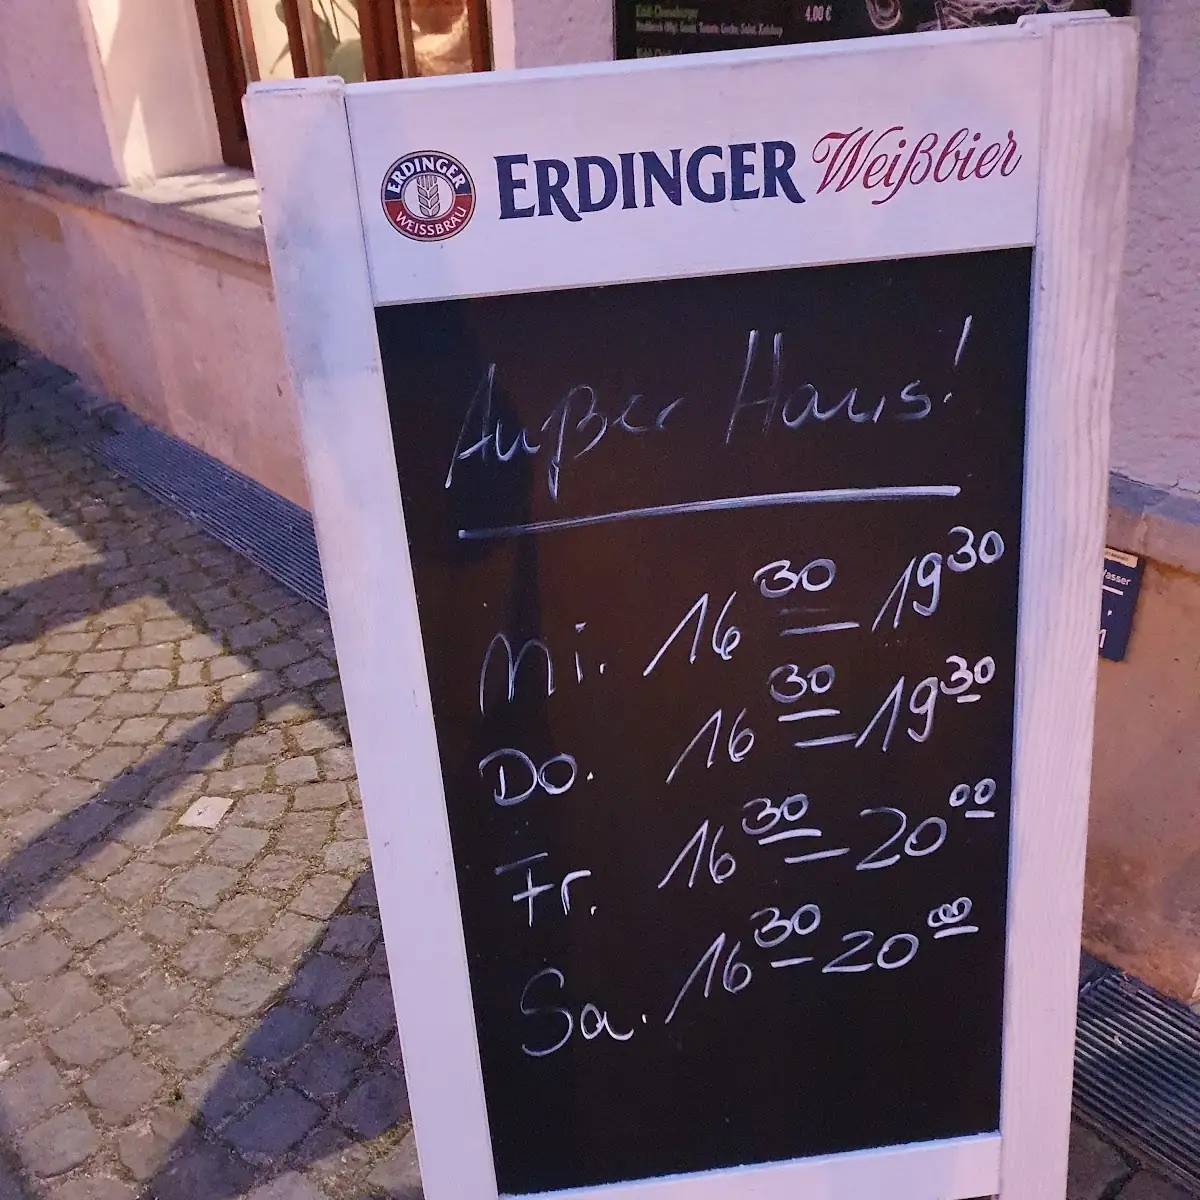 4.00 €
ERDINGER
WEISSBRÄU
ERDINGER Weißbier
Außer Haus!
Mi. 16 30 – 19 30
Do. 16 30 – 19 30
Fr. 16 30 – 20 00
Sa. 16 30 – 20 00